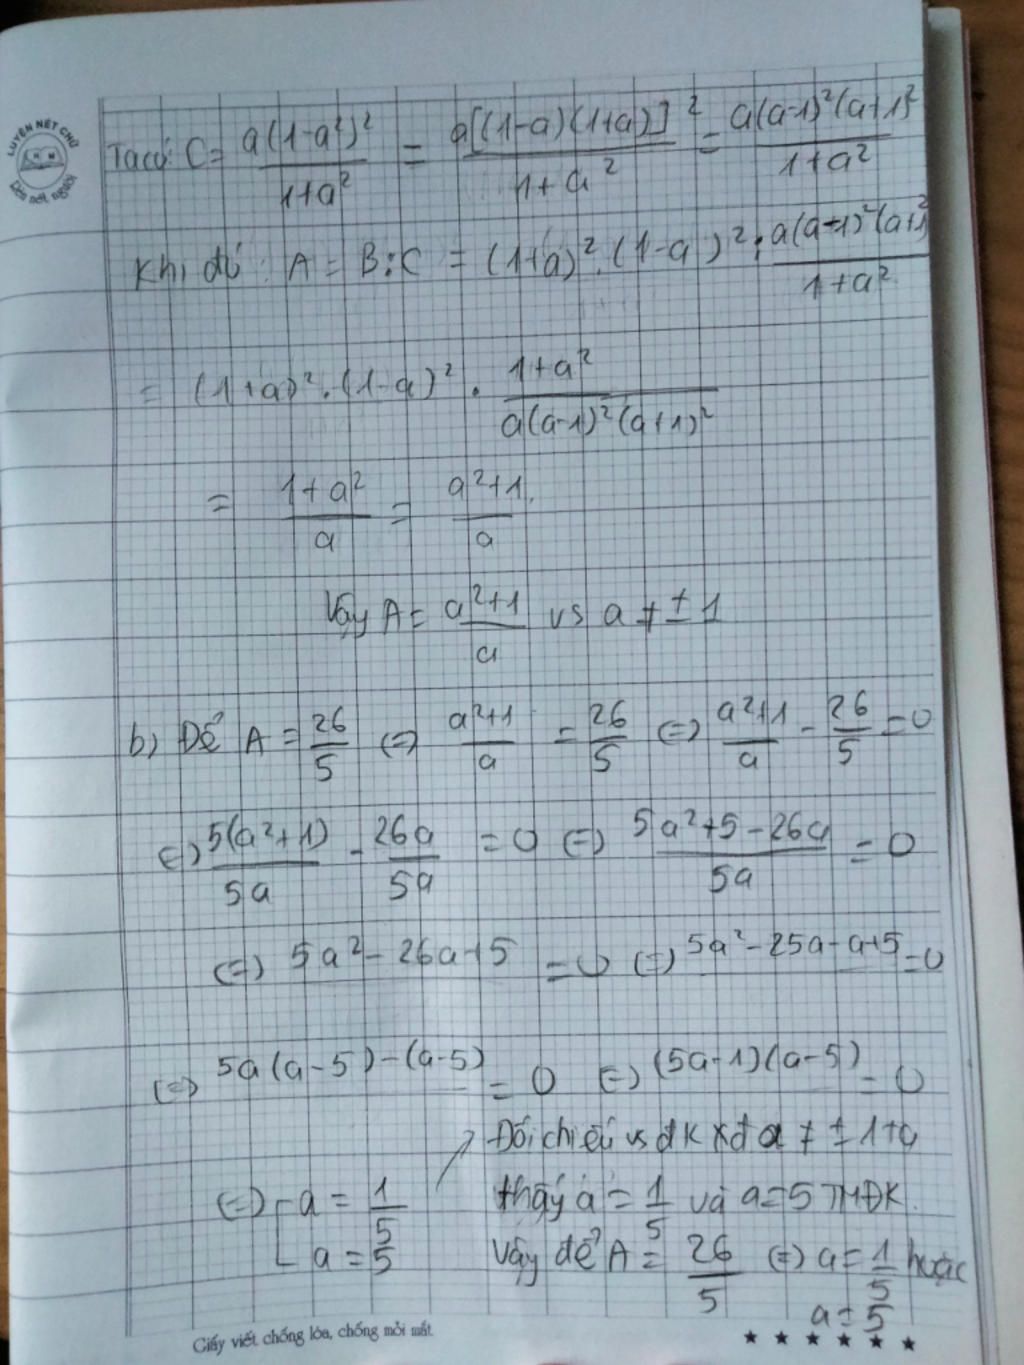 LUYỆN NÉT CHỮ
Rèn nết người
Ta có: C = a(1-a²)²/1+a² = a[(1-a)(1+a)]²/1+a² = a(a-1)²(a+1)²/1+a²
Khi đó: A = B:C = (1+a)².(1-a)² : a(a-1)²(a+1)²/1+a²
= (1+a)².(1-a)² . 1+a²/a(a-1)²(a+1)²
= 1+a²/a = a²+1/a.
Vậy A = a²+1/a vs a ≠ ± 1
b) Để A = 26/5 (=) a²+1/a = 26/5 (=) a²+1/a - 26/5 = 0
(=) 5(a²+1)/5a - 26a/5a = 0 (=) 5a²+5-26a/5a = 0
(=) 5a² - 26a+5 = 0 (=) 5a² - 25a - a+5 = 0
(=) 5a(a-5) - (a-5) = 0 (=) (5a-1)(a-5) = 0
Đối chiếu vs đk xđ a ≠ ± 1
(=) [ a = 1/5 thấy a = 1/5 và a=5 TMĐK.
a = 5 Vậy để A = 26/5 (=) a = 1/5 hoặc
a = 5
Giấy viết chống lóa, chống mỏi mắt